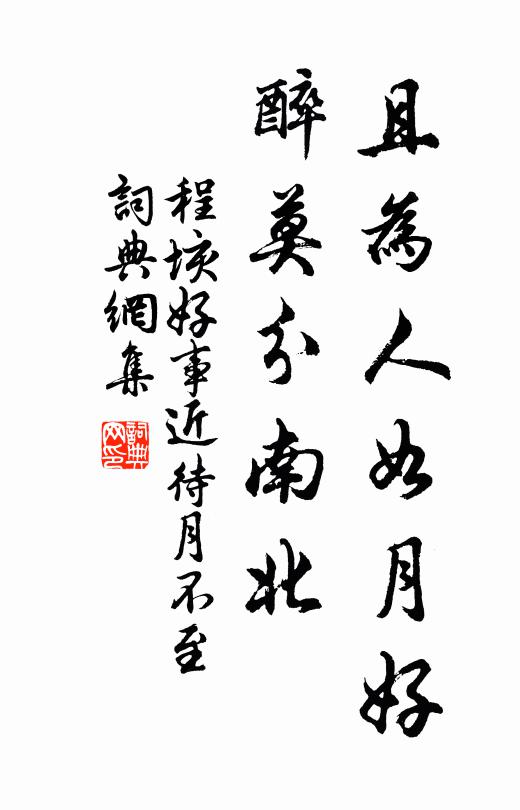 且為人如月好
醉莫分南北
程垓好事近待月不至
詞典網集
詞典网印